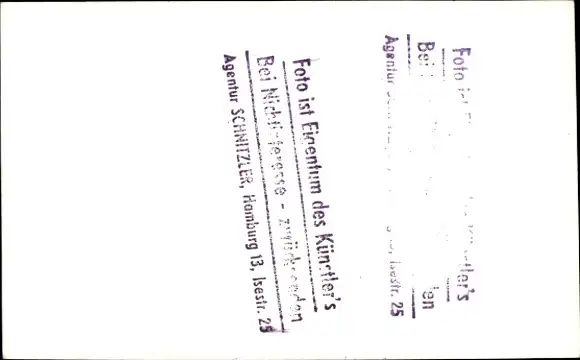 Foto ist Eigentum des Künstler's
Bei Nichtinteresse - zurücksenden
Agentur SCHNITZLER, Hamburg 13, Isestr. 25
Foto ist
Bei
Agentur Isestr. 25